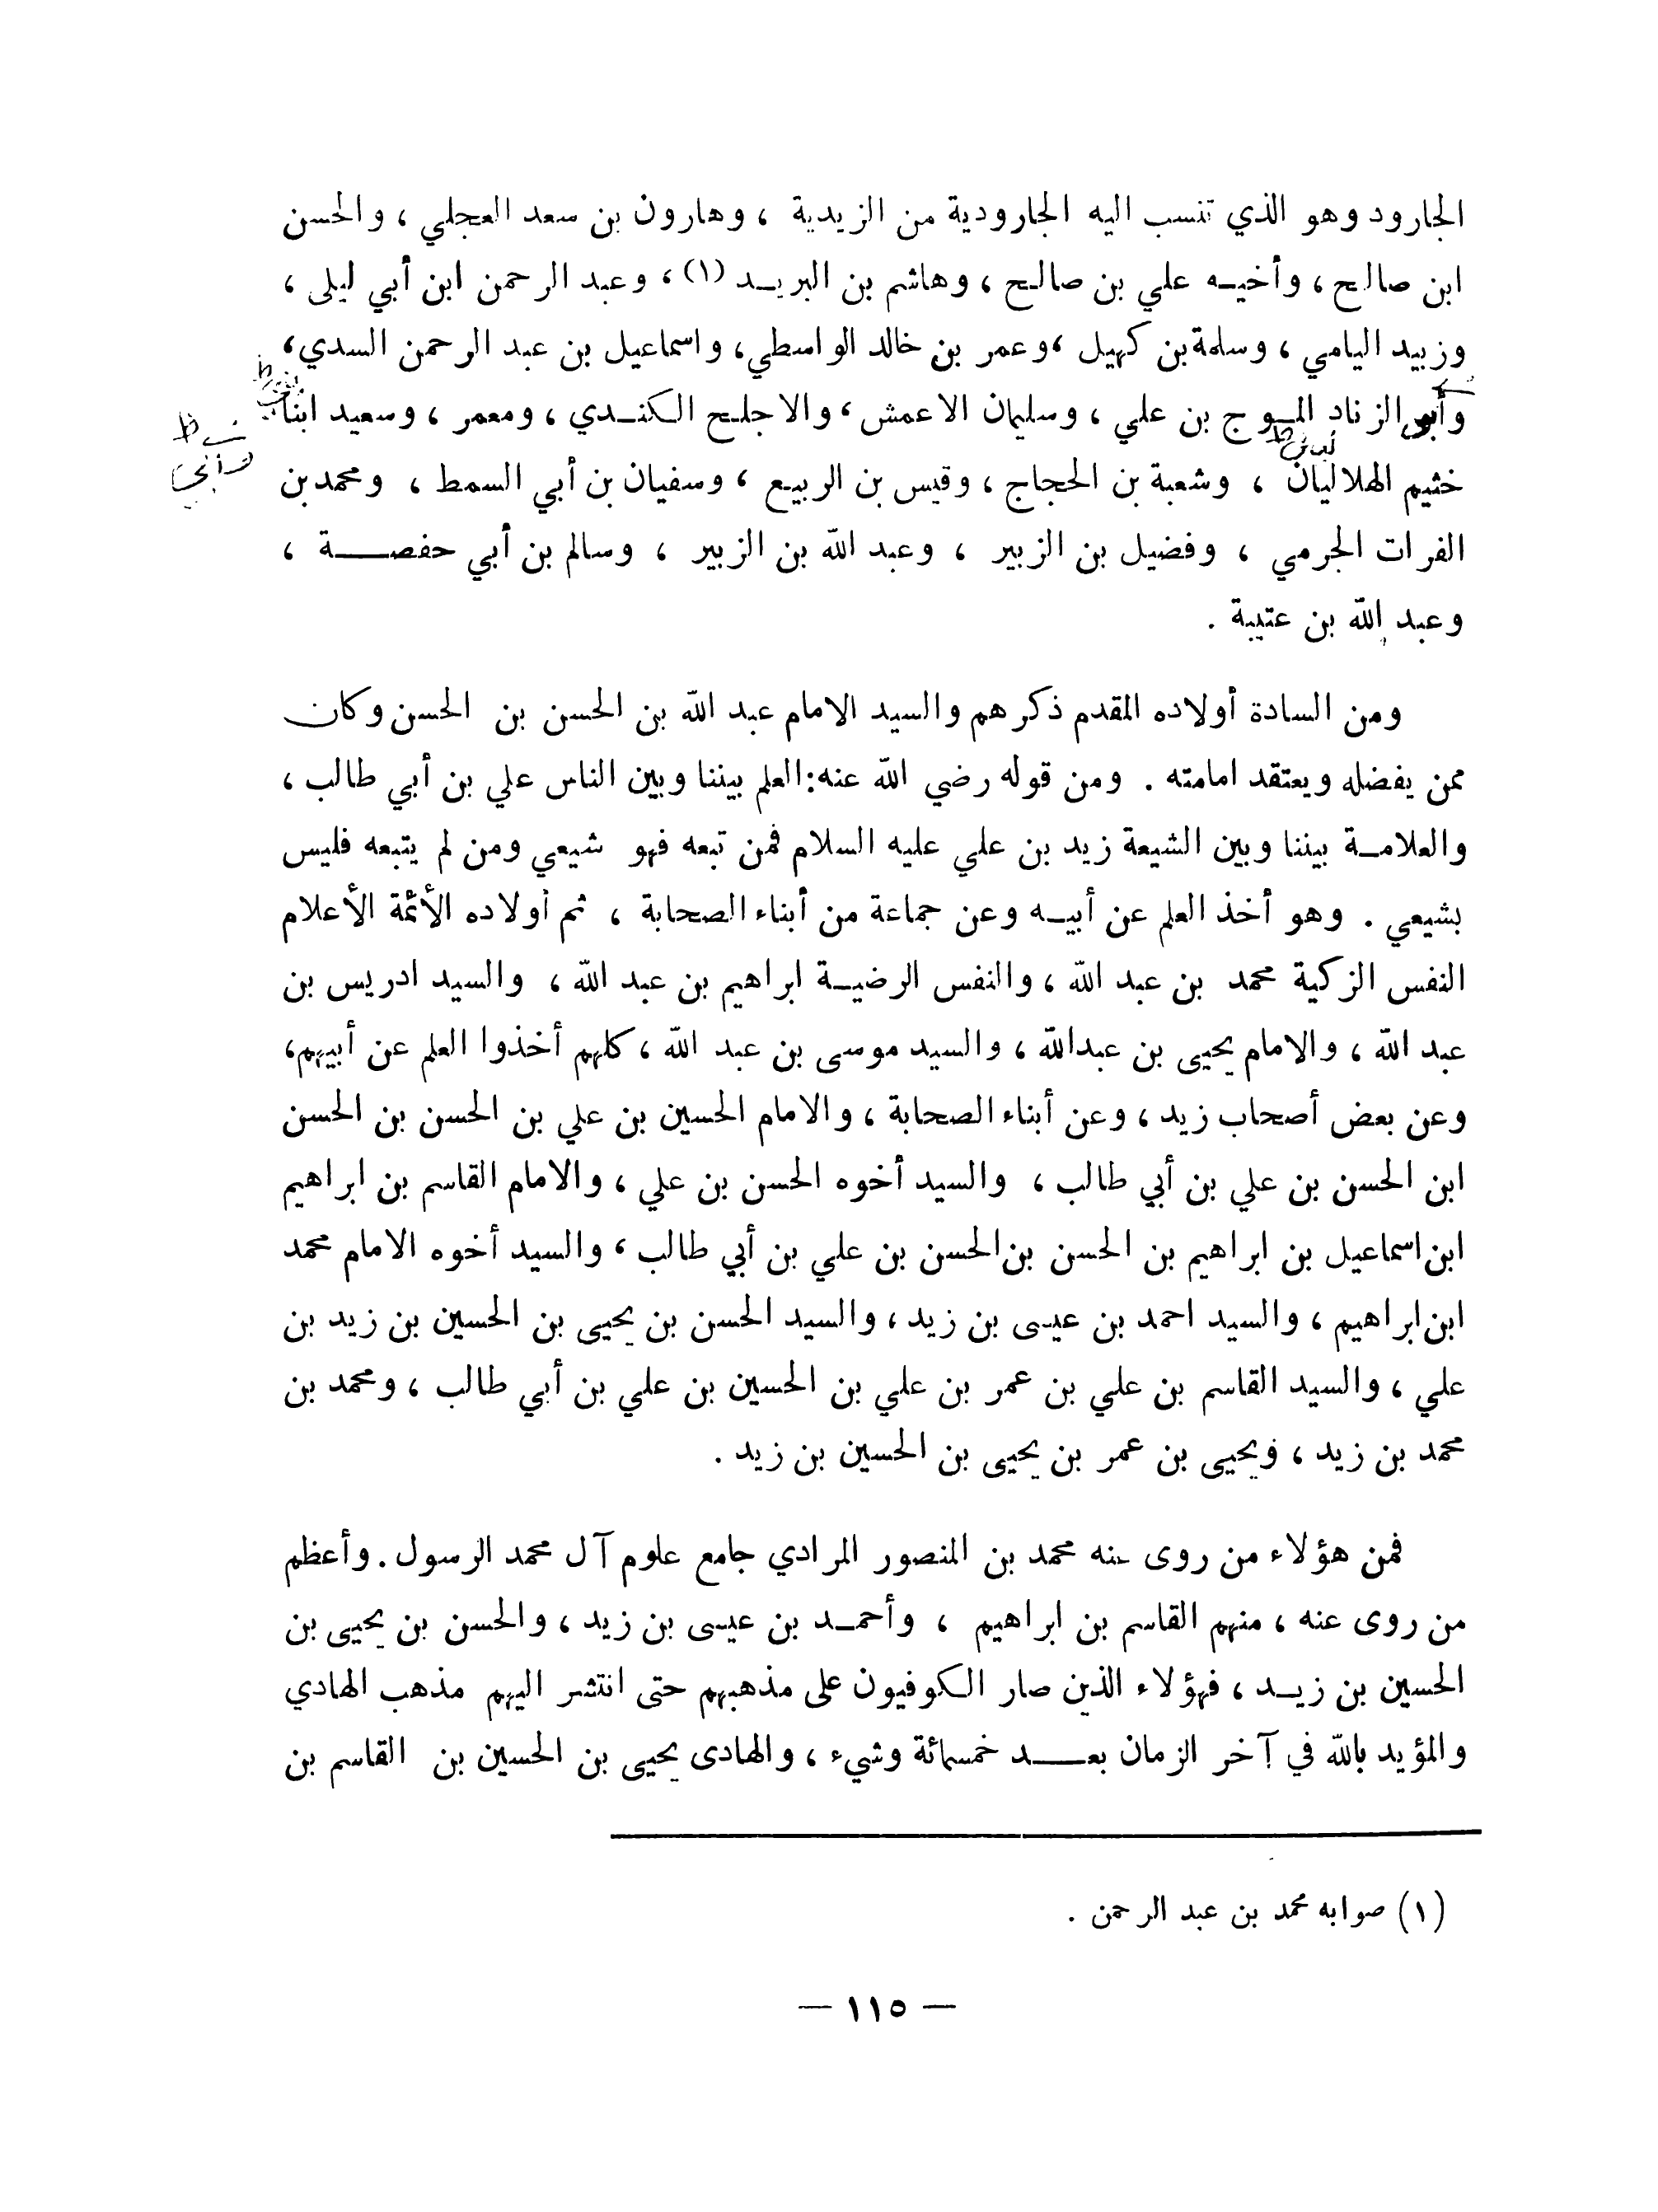 الجارود وهو الذي تنسب اليه الجارودية من الزيدية ، وهارون بن سعد العجلي ، والحسن
ابن صالح ، وأخيـه علي بن صالح ، وهاشم بن البريـد (١) ، وعبد الرحمن ابن أبي ليلى ،
وزبيد اليامي ، وسلمة بن كهيل ، وعمر بن خالد الواسطي ، واسماعيل بن عبد الرحمن السدي ،
وأبو الزناد المـوج بن علي ، وسليمان الاعمش ، والاجلح الكنـدي ، ومعمر ، وسعيد ابنا
خثيم الهلاليان ، وشعبة بن الحجاج ، وقيس بن الربيع ، وسفيان بن أبي السمط ، ومحمد بن
الفرات الجرمي ، وفضيل بن الزبير ، وعبد الله بن الزبير ، وسالم بن أبي حفصــــة ،
وعبد الله بن عتيبة .
ومن السادة أولاده المقدم ذكرهم والسيد الامام عبد الله بن الحسن بن الحسن وكان
ممن يفضله ويعتقد امامته . ومن قوله رضي الله عنه : العلم بيننا وبين الناس علي بن أبي طالب ،
والعلامـة بيننا وبين الشيعة زيد بن علي عليه السلام فمن تبعه فهو شيعي ومن لم يتبعه فليس
بشيعي . وهو أخذ العلم عن أبيـه وعن جماعة من أبناء الصحابة ، ثم أولاده الأئمة الأعلام
النفس الزكية محمد بن عبد الله ، والنفس الرضيـة ابراهيم بن عبد الله ، والسيد ادريس بن
عبد الله ، والامام يحيى بن عبدالله ، والسيد موسى بن عبد الله ، كلهم أخذوا العلم عن أبيهم ،
وعن بعض أصحاب زيد ، وعن أبناء الصحابة ، والامام الحسين بن علي بن الحسن بن الحسن
ابن الحسن بن علي بن أبي طالب ، والسيد أخوه الحسن بن علي ، والامام القاسم بن ابراهيم
ابن اسماعيل بن ابراهيم بن الحسن بن الحسن بن علي بن أبي طالب ، والسيد أخوه الامام محمد
ابن ابراهيم ، والسيد احمد بن عيسى بن زيد ، والسيد الحسن بن يحيى بن الحسين بن زيد بن
علي ، والسيد القاسم بن علي بن عمر بن علي بن الحسين بن علي بن أبي طالب ، ومحمد بن
محمد بن زيد ، ويحيى بن عمر بن يحيى بن الحسين بن زيد .
فمن هؤلاء من روى عنه محمد بن المنصور المرادي جامع علوم آل محمد الرسول . وأعظم
من روى عنه ، منهم القاسم بن ابراهيم ، وأحمـد بن عيسى بن زيد ، والحسن بن يحيى بن
الحسين بن زيـد ، فهؤلاء الذين صار الكوفيون على مذهبهم حتى انتشر اليهم مذهب الهادي
والمؤيد بالله في آخر الزمان بعـــد خمسمائة وشيء ، والهادى يحيى بن الحسين بن القاسم بن
(١) صوابه محمد بن عبد الرحمن .
— ١١٥ —